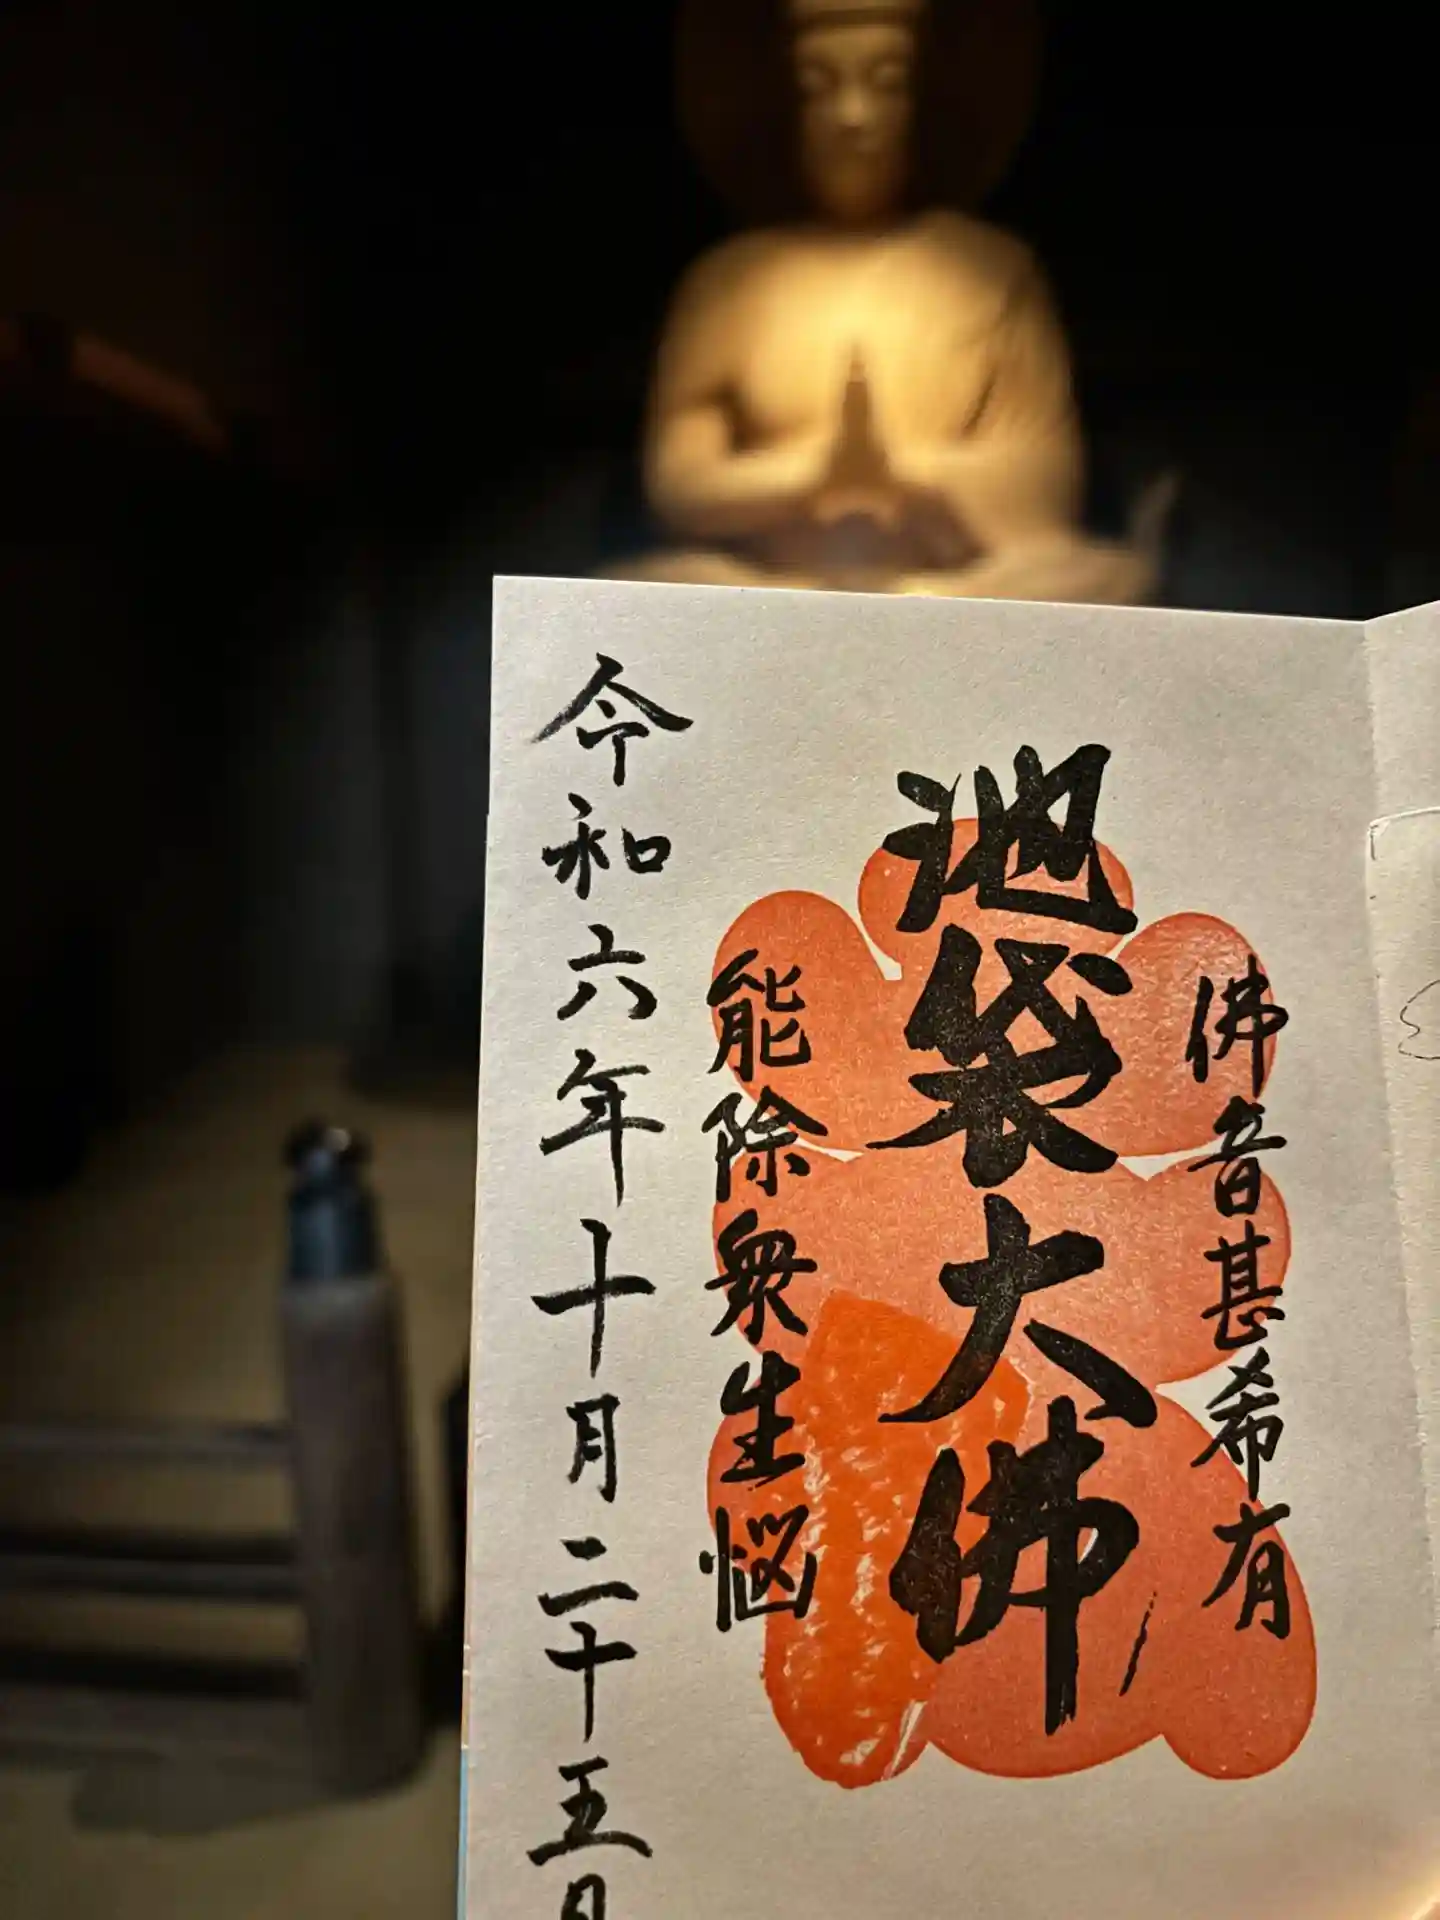 佛音甚希有
池袋大佛
能除衆生悩
令和六年十月二十五日